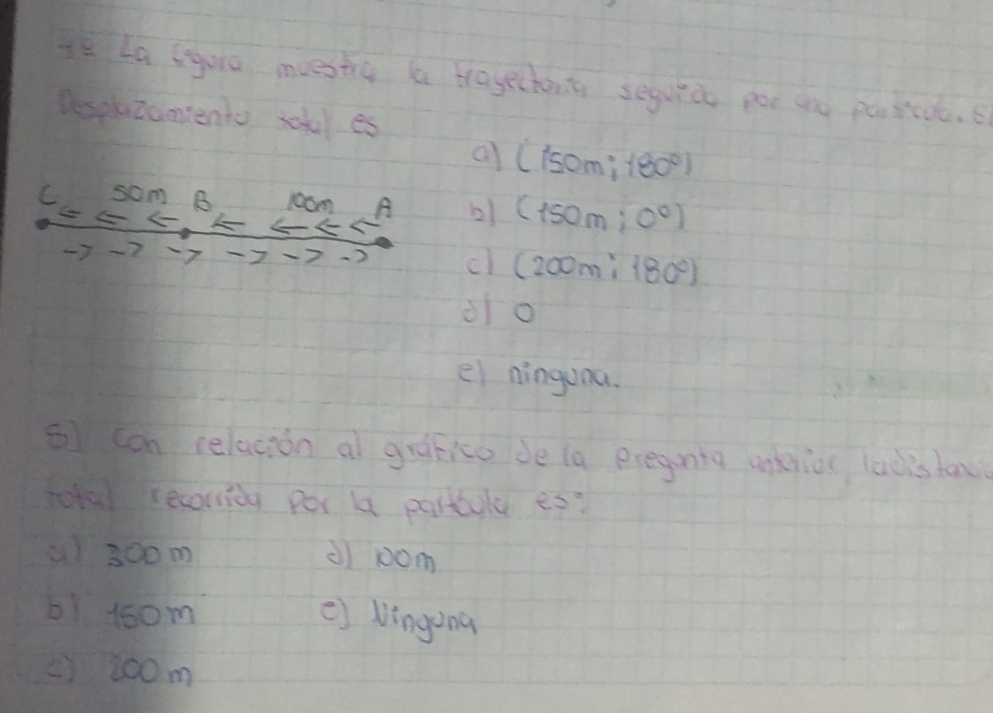 La figura muestra la trayectoria seguida por una partícula. El
Desplazamiento total es
a) (150m; 180°)
C 50m B 100m A
b) (150m; 0°)
c) (200m; 180°)
d) 0
e) ninguna.
5) Con relación al gráfico de la pregunta anterior, la distancia
total recorrida por la partícula es:
a) 300m d) 100m
b) 150m e) Ninguna
c) 200m